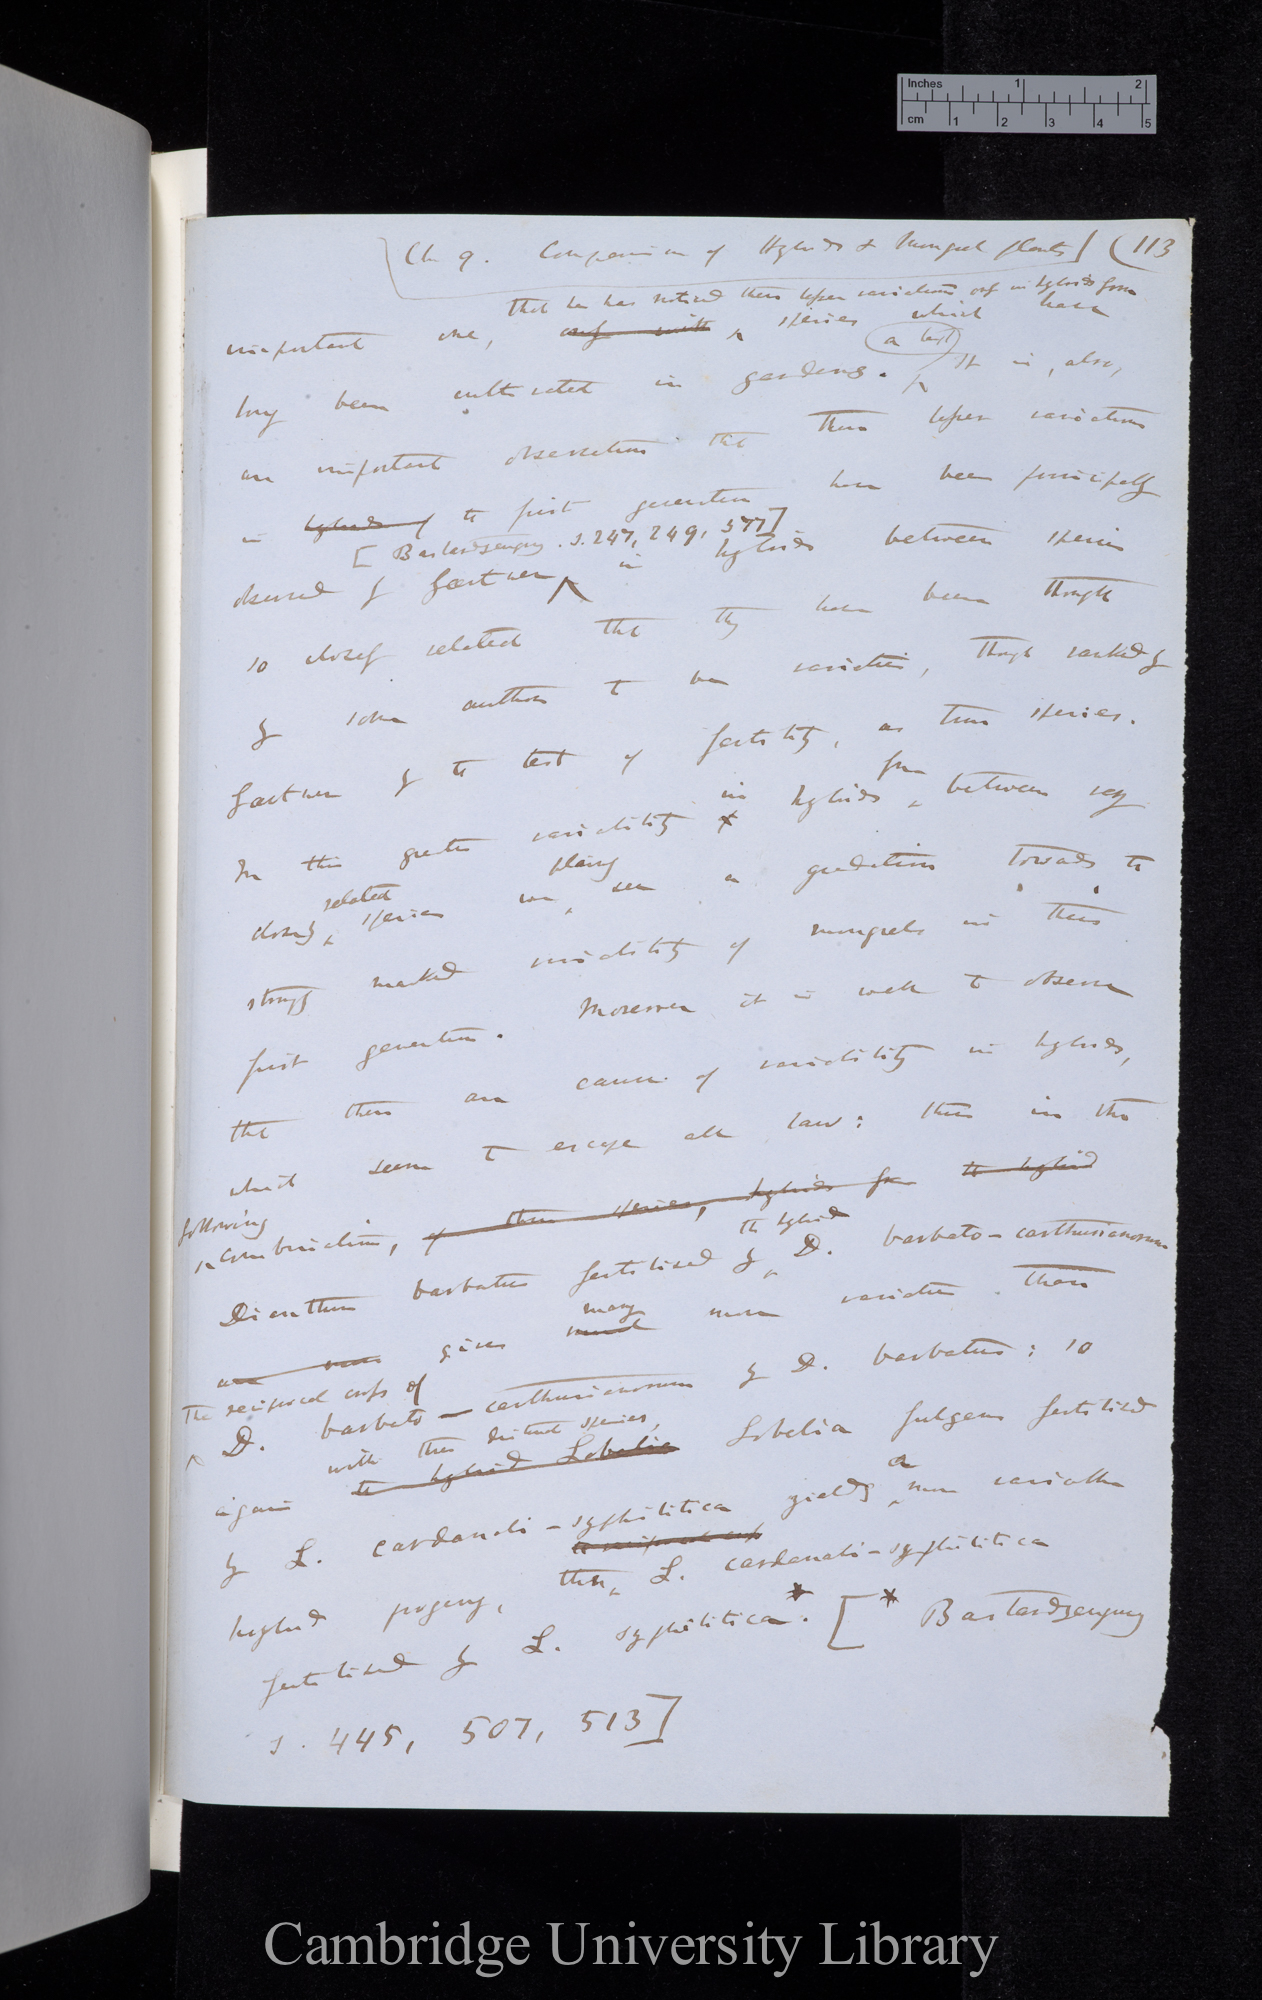 Inches 1 2
cm 1 2 3 4 5
(Ch 9. Comparison of Hybrids & Mongrel plants] (113
that he has noticed these lesser variations only in hybrids from
important one, only with species which have
a last
long been cultivated in gardens. It is, also,
an important observation that these lesser variations
in hybrids of the first generation have been principally
[Bastardzeugung. s. 247, 249, 577]
observed by Gærtner, in hybrids between species
so closely related that they have been thought
by some authors to be varieties, though ranked by
Gærtner by the test of fertility, as true species.
from
In this greater variability in hybrids between very
related plainly
closely species we see a gradation towards the
strongly marked variability of mongrels in their
first generation. Moreover it is well to observe
that there are causes of variability in hybrids,
which seem to escape all law: thus in the
following
combination, of these species, hybrids from the hybrid
the hybrid
Dianthus barbatus fertilised by D. barbato-carthusianorum
many
are more gives much more varieties than
the reciprocal cross of
D. barbato-carthusianorum by D. barbatus: so
with three distinct species,
again the hybrid Lobelia Lobelia fulgens fertilised
a
by L. cardinali-syphilitica yields more variable
the reciprocal cross
hybrid progeny, than L. cardinali-syphilitica
fertilised by L. syphilitica*. [* Bastardzeugung
s. 445, 507, 513]
Cambridge University Library